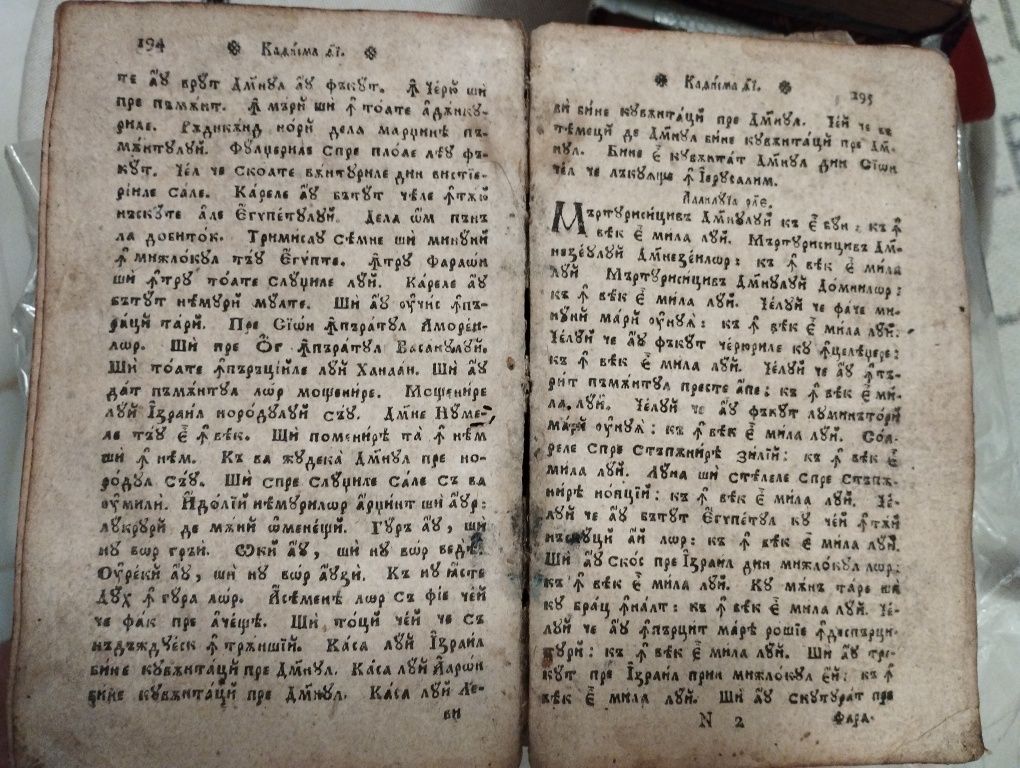 194 ❉ Каѳи́сма ѳ҃і. ❉
те а҆ꙋ врꙋт Дм҃нꙋл а҆ꙋ фъкꙋт. Ꙟ҆ че́рю ши
пре пъмѫ́нт. Ꙟ҆ мъ́рй ши ꙟ҆ то́ате а҆дѫ́нкꙋ-
риле. Ръдикѫ́нд но́рй дела марџинѣ пъ-
мѫ́нтꙋлꙋй. Фꙋлџериле спре пло́ае лѣꙋ фъ-
кꙋт. Че́л че скоате вѫ́нтꙋриле дин вистїе-
рїиле са́ле. Ка́реле а҆ꙋ бътꙋт чѣле ꙟ҆тѫ́ю
нъскꙋте а҆ле Є҆гѵпе́тꙋлꙋй. Дела ѡ҆м пѫнъ
ла добито́к. Тримисаꙋ сѣмне ши минꙋнй
ꙟ҆ мижло́кꙋл тъ́ꙋ Є҆гѵпте. Ꙟ҆тру Фараѡн
ши ꙟ҆трꙋ то́ате слꙋџиле лꙋй. Ка́реле а҆ꙋ
бътꙋт нѣмꙋрй мꙋлте. Ши а҆ꙋ ᲂу҆чи́с ꙟ҆пъ-
ра́цй та́рй. Пре Сїѡ́н ꙟ҆пъра́тꙋл Аморе́и-
лѡр. Ши пре Ѻ҆г ꙟ҆пъра́тꙋл Васанꙋлꙋй.
Ши то́ате ꙟ҆пъръцїиле лꙋй Ханаа́н. Ши а҆ꙋ
дат пъмѫ́нтꙋл лѡ́р мощени́ре. Мощени́ре
лꙋй І҆зраи́л норо́дꙋлꙋй съ́ꙋ. До́мне Нꙋме-
ле тъ́ꙋ є҆́ ꙟ҆ вѣк. Ши помени́рѣ та̀ ꙟ҆ нѣм
ши ꙟ҆ нѣм. Къ ва жꙋдека̀ Дм҃нꙋл пре но-
ро́дꙋл съ́ꙋ. Ши спре слꙋџиле са́ле съ ва
ᲂу҆милѝ. И҆до́лїй нѣмꙋрилѡр арџи́нт ши а҆́ꙋр:
лꙋкрꙋрй де мѫ́нй ѡ҆мене́щй. Гꙋръ а҆ꙋ, ши
нꙋ вѡ́р гръѝ. Ѡкй а҆ꙋ, ши нꙋ вѡ́р ведѣ̀.
Оу҆ре́кй а҆ꙋ, ши нꙋ вѡ́р а҆ꙋзѝ. Къ нꙋ ꙗ҆́сте
Дꙋх ꙟ҆ гꙋра лѡ́р. А҆сѣменѣ лѡр съ фі́е че́й
че фа́к пре а҆че́щѣ. Ши то́цй че́й че съ
нъдъждꙋе́ск ꙟ҆трѫ́ншїй. Ка́са лꙋй І҆зраи́л
би́не кꙋвѫнта́цй пре Дм҃нꙋл. Ка́са лꙋй А҆арѡ́н
би́не кꙋвѫнта́цй пре Дм҃нꙋл. Ка́са лꙋй Ле-
ви
❉ Каѳи́сма ѳ҃і. ❉ 195
вѝ би́не кꙋвѫнта́цй пре Дм҃нꙋл. Че́й че въ
те́мецй де Дм҃нꙋл би́не кꙋвѫнта́цй пре Дм҃-
нꙋл. Бине є҆́ кꙋвѫнта́т Дм҃нꙋл дин Сїѡ́н
че́л че лъкꙋꙗ́ще ꙟ҆ І҆ерꙋсали́м.
Аллилꙋїа рл҃е.
Мъртꙋриси́цивъ Дм҃нꙋлꙋй къ є҆́ бꙋн: къ ꙟ҆
вѣк є҆́ мила лꙋй. Мъртꙋриси́цивъ Дм҃-
незе́ꙋлꙋй Дм҃незе́илѡр: къ ꙟ҆ вѣк є҆́ мила
лꙋй. Мъртꙋриси́цивъ Дм҃нꙋлꙋй До́мнилѡр:
къ ꙟ҆ вѣк є҆́ мила лꙋй. Че́лꙋй че фа́че ми-
нꙋнй ма́рй ᲂу҆́нꙋꙗ: къ ꙟ҆ вѣк є҆́ мила лꙋй.
Че́лꙋй че а҆ꙋ фъкꙋт че́рюриле кꙋ ꙟ҆целѣџере:
къ ꙟ҆ вѣк є҆́ мила лꙋй. Че́лꙋй че а҆ꙋ ꙟ҆тъ-
ри́т пъмѫ́нтꙋл песте а҆́пе: къ ꙟ҆ вѣк є҆́ ми-
ла лꙋй. Че́лꙋй че а҆ꙋ фъкꙋт лꙋминътѡ́рй
ма́рй ᲂу҆́нꙋꙗ: къ ꙟ҆ вѣк є҆́ мила лꙋй. Со́а-
реле спре стъпѫни́рѣ зи́лїй: къ ꙟ҆ вѣк є҆́
мила лꙋй. Лꙋна ши стѣлеле спре стъпѫ-
ни́рѣ но́пцїй: къ ꙟ҆ вѣк є҆́ мила лꙋй. Че́-
лꙋй че а҆ꙋ бътꙋт Є҆гѵпе́тꙋл кꙋ че́й ꙟ҆тѫ́й
нъскꙋцй а҆й лѡр: къ ꙟ҆ вѣк є҆́ мила лꙋй.
Ши а҆ꙋ ско́с пре І҆зраи́л дин мижло́кꙋл лѡр:
къ ꙟ҆ вѣк є҆́ мила лꙋй. Кꙋ мѫ́нъ таре ши
кꙋ бра́ц ꙟ҆на́лт: къ ꙟ҆ вѣк є҆́ мила лꙋй. Че́-
лꙋй че а҆ꙋ ꙟ҆пърци́т ма́рѣ рошїе ꙟ҆деспърци-
тꙋрй: къ ꙟ҆ вѣк є҆́ мила лꙋй. Ши а҆ꙋ тре-
кꙋт пре І҆зраи́л прин мижло́кꙋл є҆́й: къ ꙟ҆
вѣк є҆́ мила лꙋй. Ши а҆ꙋ скꙋтꙋра́т пре
N 2 Фара-